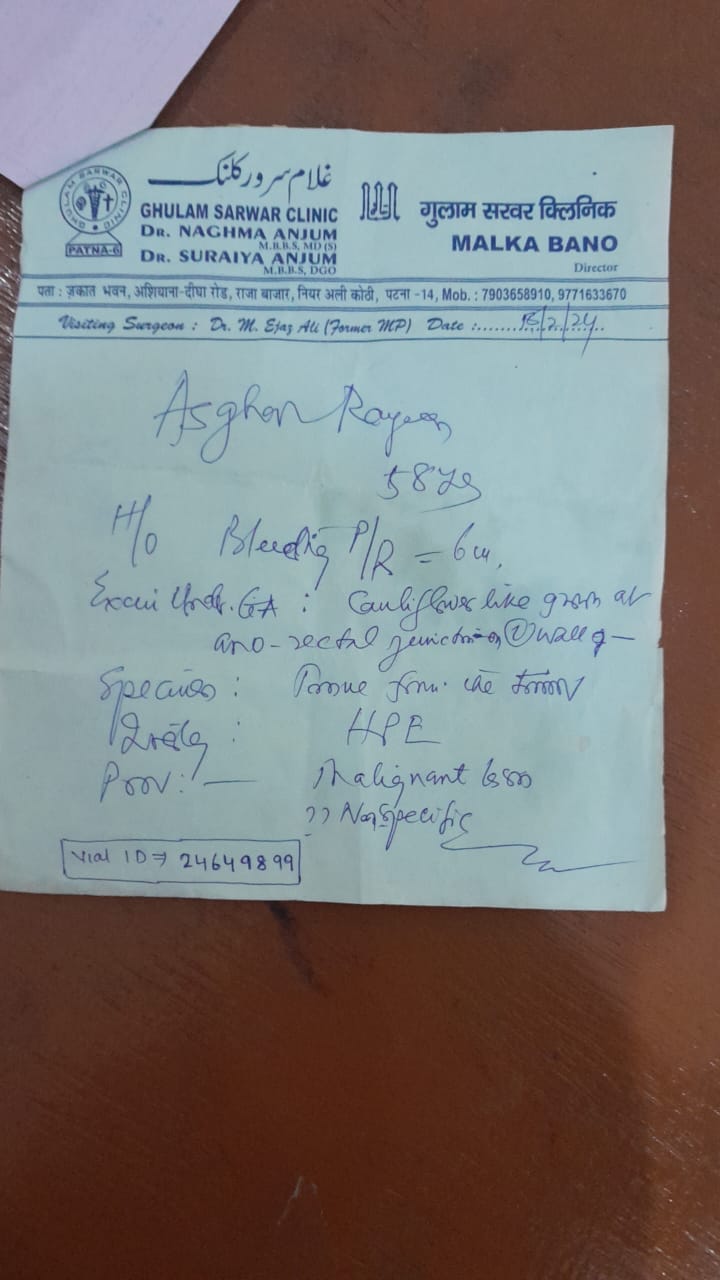 غلام سرور کلنک
GHULAM SARWAR CLINIC
PATNA-6
GHULAM SARWAR CLINIC
DR. NAGHMA ANJUM
M.B.B.S, MD (S)
DR. SURAIYA ANJUM
M.B.B.S, DGO
गुलाम सरवर क्लिनिक
MALKA BANO
Director
पता : ज़कात भवन, अशियाना-दीघा रोड, राजा बाजार, नियर अली कोठी, पटना -14, Mob. : 7903658910, 9771633670
Visiting Surgeon : Dr. M. Ejaz Ali (Former MP) Date :....15/2/24..
Asghar
58 yrs
H/o Bleeding P/R = 6 m,
Exam Under. GA : Cauliflower like growth at
ano-rectal junction wall
: Tissue from the tumor
: HPE
Prov: — Malignant
?? Nonspecific
Vial ID ⇒ 24649899